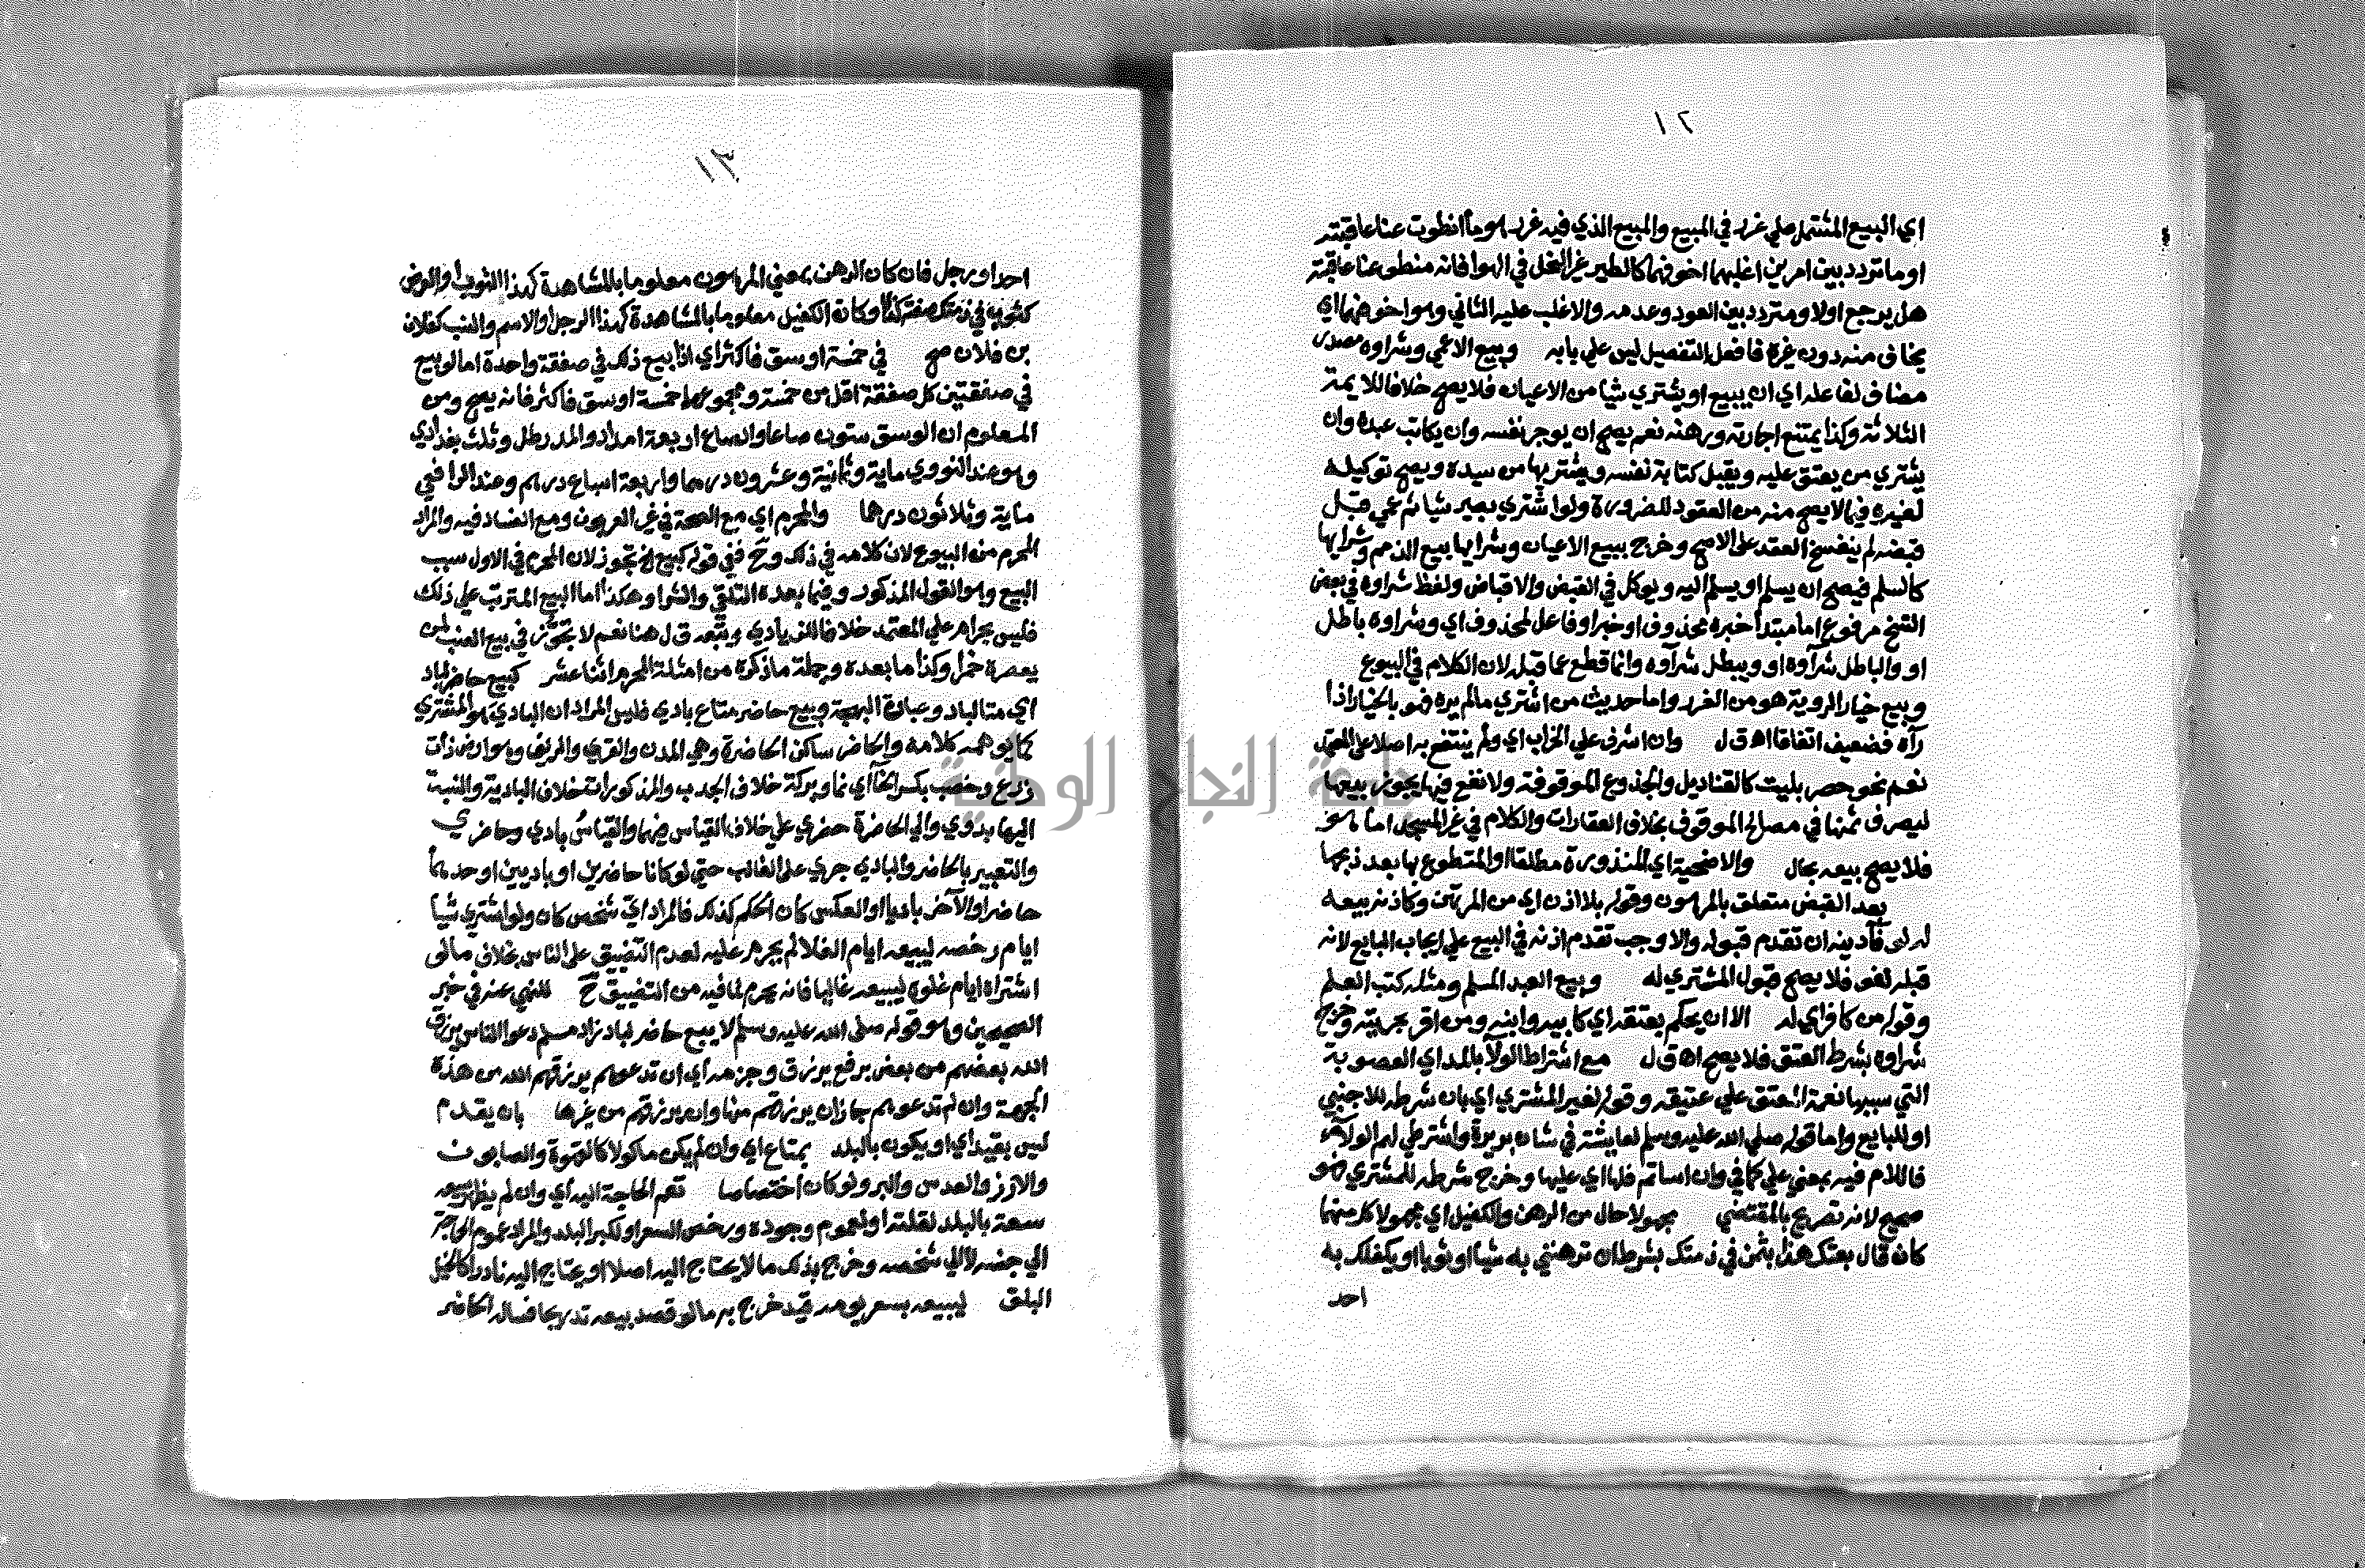 ١٢
اي البيع المشتمل علي غرر في المبيع والمبيع الذي فيه غرر هو ما انطوت عنا عاقبته
او ما تردد بين امرين اغلبهما اخوفهما كالطير غير النحل في الهوا فانه منطو عنا عاقبته
هل يرجع اولا ومتردد بين العود وعدمه والاغلب عليه الثاني وهو اخوفهما اي
يخاف منه دون غيره فافعل التفضيل ليس علي بابه وبيع الاعمي وشراوه مصدر
مضاف لفاعله اي ان يبيع او يشتري شيا من الاعيان فلا يصح خلافا للايمة
الثلاثة وكذا يمتنع اجارته ورهنه نعم يصح ان يوجر نفسه وان يكاتب عبده وان
يشتري من يعتق عليه ويقبل كتابة نفسه ويشتريها من سيده ويصح توكيله
لغيره فيما لا يصح منه من العقود للضرورة ولو اشتري بصير شيا ثم عمي قبل
قبضه لم ينفسخ العقد علي الاصح وخرج ببيع الاعيان وشرايها بيع الذمم وشرايها
كالسلم فيصح ان يسلم او يسلم اليه ويوكل في القبض والاقباض ولفظ شراوه في بعض
النسخ مرفوع اما مبتدا خبره محذوف او خبر او فاعل لمحذوف اي وشراوه باطل
او والباطل شراوه او ويبطل شراوه وانما قطع عما قبله لان الكلام في البيوع
وبيع خيار الروية هو من الغرر واما حديث من اشتري ما لم يره فهو بالخيار اذا
رآه فضعيف اتفاقا اه ق ل وان اشرف علي الخراب اي ولم ينتفع به اصلا علي المعتمد
نعم نحو حصر بليت كالقناديل والجذوع الموقوفة ولا نفع فيها يجوز بيعها
ليصرف ثمنها في مصالح الموقوف بخلاف العقارات والكلام في غير المسجد اما هو
فلا يصح بيعه بحال والاضحية اي المنذورة مطلقا او المتطوع بها بعد ذبحها
بعد القبض متعلق بالمرهون وقوله بلا اذن اي من المرتهن وكاذنه بيعه
له لان فآدينه ان تقدم قبوله والا وجب تقدم اذنه في البيع علي ايجاب البايع لانه
قبله لغو فلا يصح قبول المشتري له وبيع العبد المسلم ومثله كتب العلم
وقوله من كافر اي له الا ان يحكم بعتقه اي كابيه وابنه ومن اقر بحريته وخرج
شراوه بشرط العتق فلا يصح اه ق ل مع اشتراط الولآ بالمد اي العصوبة
التي سببها نعمة المعتق علي عتيقه وقوله لغير المشتري اي بان شرطه للاجنبي
او للبايع واما قوله صلي الله عليه وسلم لعايشة في شان بريرة واشترطي لهم الولآء
فاللام فيه بمعني علي كما في وان اساتم فلها اي عليها وخرج شرطه للمشتري فهو
صحيح لانه تصريح بالمقتضي مجهولا حال من الرهن والكفيل اي مجهولا كل منهما
كان قال بعتك هذا بثمن في ذمتك بشرط ان ترهنني به شيا او ثوبا او يكفلك به
احد
١٣
احد او رجل فان كان الرهن بمعني المرهون معلوما بالمشاهدة كهذا الثوب او الوصف
كثوب في ذمتك صفته كذا وكان الكفيل معلوما بالمشاهدة كهذا الرجل او الاسم والنسب كفلان
بن فلان صح في خمسة اوسق فاكثر اي اذا بيع ذلك في صفقة واحدة اما لو بيع
في صفقتين كل صفقة اقل من خمسة ومجموعهما خمسة اوسق فاكثر فانه يصح ومن
المعلوم ان الوسق ستون صاعا والصاع اربعة امداد والمد رطل وثلث بغدادي
وهو عند النووي ماية وثمانية وعشرون درهما واربعة اسباع درهم وعند الرافعي
ماية وثلاثون درهما والمحرم اي مع الصحة في غير العربون ومع الفساد فيه والمراد
المحرم من البيوع لان كلامه في ذلك وح ففي قوله كبيع الخ تجوز لان المحرم في الاول سبب
البيع وهو القول المذكور وفيما بعده التلقي والشرا وهكذا اما البيع المترتب علي ذلك
فليس بحرام علي المعتمد خلافا للزيادي وتبعه ق ل هنا نعم لا تجوز في بيع العنب لمن
يعصره خمرا وكذا ما بعده وجملة ما ذكره من امثلة المحرم اثنا عشر كبيع حاضر لباد
اي متا لباد وعبارة البهجة وبيع حاضر متاع بادي فليس المراد ان البادي هو المشتري
كما يوهمه كلامه والحاضر ساكن الحاضرة وهي المدن والقري والريف وهو ارض ذات
زرع وخصب بكسر الخآ اي نما وبركة خلاف الجدب والمذكورات خلاف البادية والنسبة
اليها بدوي والي الحاضرة حضري علي خلاف القياس فيهما والقياس بادي وحاضري
والتعبير بالحاضر والبادي جري علي الغالب حتي لو كانا حاضرين او باديين او احدهما
حاضرا والآخر باديا او العكس كان الحكم كذلك فالمراد اي شخص كان ولو اشتري شيا
ايام رخصه ليبيعه ايام الغلا لم يحرم عليه لعدم التضييق علي الناس بخلاف ما لو
اشتراه ايام غلوه ليبيعه غاليا فانه يحرم لما فيه من التضييق ح للنهي عنه في خبر
الصحيحين وهو قوله صلي الله عليه وسلم لا يبيع حاضر لباد زاد مسلم دعوا الناس يرزق
الله بعضهم من بعض برفع يرزق وجزمه اي ان تدعوهم يرزقهم الله من هذه
الجهة وان لم تدعوهم جاز ان يرزقهم منها وان يرزقهم من غيرها بان يقدم
ليس بقيد اي او يكون بالبلد بمتاع اي وان لم يكن ماكولا كالقهوة والصابون
والارز والعدس والبر ولو كان اختصاصا تعم الحاجة اليه اي وان لم يظهر ببيعه
سعة بالبلد لقلته او لعموم وجوده ورخص السعر او لكبر البلد والمراد عموم الحاجة
الي جنسه لا الي شخصه وخرج بذلك ما لا يحتاج اليه اصلا او يحتاج اليه نادرا كالخيل
البلق ليبيعه بسعر يومه قيد خرج به ما لو قصد بيعه تدريجا فساله الحاضر
جامعة النجاح الوطنية